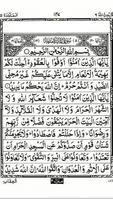 بِسْمِ اللهِ الرَّحْمٰنِ الرَّحِيْمِ
يٰۤاَيُّهَا الَّذِيْنَ اٰمَنُوْۤا اَوْفُوْا بِالْعُقُوْدِ اُحِلَّتْ لَكُمْ
بَهِيْمَةُ الْاَنْعَامِ اِلَّا مَا يُتْلٰى عَلَيْكُمْ غَيْرَ مُحِلِّي
الصَّيْدِ وَاَنْتُمْ حُرُمٌ اِنَّ اللهَ يَحْكُمُ مَا يُرِيْدُ
يٰۤاَيُّهَا الَّذِيْنَ اٰمَنُوْا لَا تُحِلُّوْا شَعَآئِرَ اللهِ وَلَا
الشَّهْرَ الْحَرَامَ وَلَا الْهَدْيَ وَلَا الْقَلَآئِدَ وَلَاۤ آٰمِّيْنَ
الْبَيْتَ الْحَرَامَ يَبْتَغُوْنَ فَضْلًا مِّنْ رَّبِّهِمْ وَرِضْوَانًا
وَاِذَا حَلَلْتُمْ فَاصْطَادُوْا وَلَا يَجْرِمَنَّكُمْ شَنَاٰنُ قَوْمٍ
اَنْ صَدُّوْكُمْ عَنِ الْمَسْجِدِ الْحَرَامِ اَنْ تَعْتَدُوْا وَتَعَاوَنُوْا
عَلَى الْبِرِّ وَالتَّقْوٰى وَلَا تَعَاوَنُوْا عَلَى الْاِثْمِ
وَالْعُدْوَانِ وَاتَّقُوا اللهَ اِنَّ اللهَ شَدِيْدُ
الْعِقَابِ